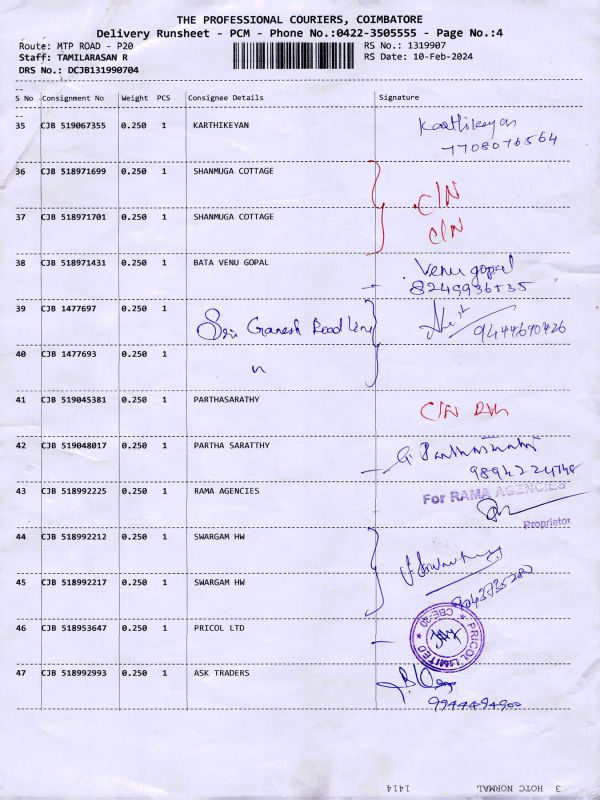 THE PROFESSIONAL COURIERS, COIMBATORE
Delivery Runsheet - PCM - Phone No.:0422-3505555 - Page No.:4
Route: MTP ROAD - P20 RS No.: 1319907
Staff: TAMILARASAN R RS Date: 10-Feb-2024
DRS No.: DCJB131990704
S No Consignment No Weight PCS Consignee Details Signature
35 CJB 519067355 0.250 1 KARTHIKEYAN Karthikeyan
7708076564
36 CJB 518971699 0.250 1 SHANMUGA COTTAGE C/N
37 CJB 518971701 0.250 1 SHANMUGA COTTAGE C/N
38 CJB 518971431 0.250 1 BATA VENU GOPAL Venu gopal
8249936535
39 CJB 1477697 0.250 1 Sri Ganesh Road
9444690426
40 CJB 1477693 0.250 1 "
41 CJB 519045381 0.250 1 PARTHASARATHY C/N
42 CJB 519048017 0.250 1 PARTHA SARATTHY G.
43 CJB 518992225 0.250 1 RAMA AGENCIES For RAMA AGENCIES
Proprietor
44 CJB 518992212 0.250 1 SWARGAM HW
45 CJB 518992217 0.250 1 SWARGAM HW
46 CJB 518953647 0.250 1 PRICOL LTD ★ PRICOL LIMITED ★ CBE-20
47 CJB 518992993 0.250 1 ASK TRADERS
9944494900
3 HOTC NORMAL 1414